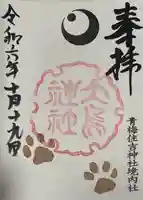 奉拝
大鳥
神社
青梅住吉神社境内社
令和六年十月十九日